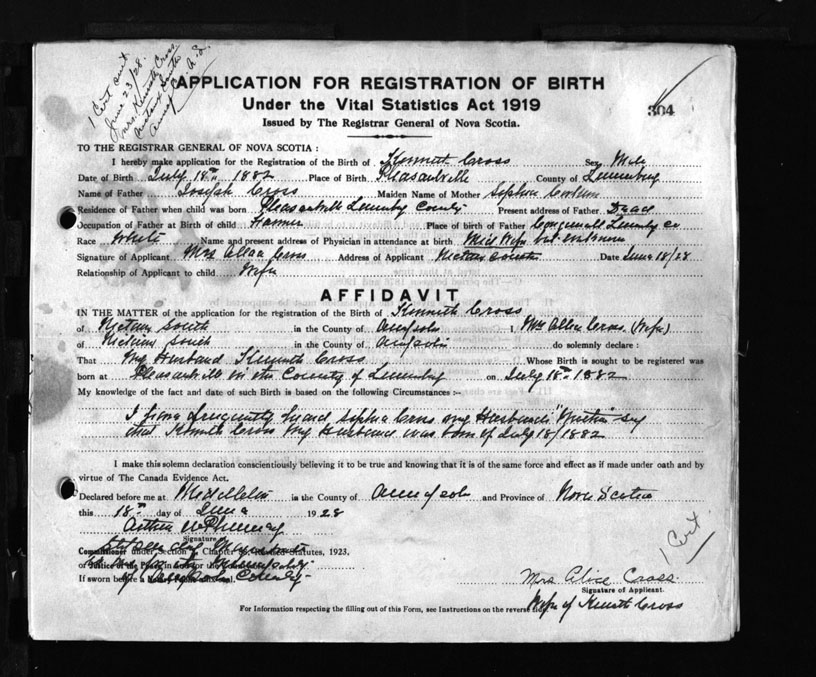 1 Cert sent
June 23/28.
Mrs Kenneth Cross
APPLICATION FOR REGISTRATION OF BIRTH
Under the Vital Statistics Act 1919
304
Issued by The Registrar General of Nova Scotia.
TO THE REGISTRAR GENERAL OF NOVA SCOTIA :
I hereby make application for the Registration of the Birth of Kenneth Cross Sex Male
Date of Birth July 18th 1882 Place of Birth Pleasantville County of Lunenburg
Name of Father Josiah Cross Maiden Name of Mother Sophia
Residence of Father when child was born Pleasantville Lunenburg County Present address of Father Dead
Occupation of Father at Birth of child Farmer Place of Birth of Father Lunenburg Co
Race White Name and present address of Physician in attendance at birth Mid Wife but unknown
Signature of Applicant Mrs Cross Address of Applicant Nictaux South Date June 18/28
Relationship of Applicant to child Wife
AFFIDAVIT
IN THE MATTER of the application for the registration of the Birth of Kenneth Cross
of Nictaux South in the County of Annapolis I, Mrs Cross (Wife)
of Nictaux South in the County of Annapolis do solemnly declare :
That My Husband Kenneth Cross Whose Birth is sought to be registered was
born at Pleasantville in the County of Lunenburg on July 18th 1882
My knowledge of the fact and date of such Birth is based on the following Circumstances :-
I have frequently heard Sophia Cross my Husbands Mother say
that Kenneth Cross my Husband was born of July 18/1882
I make this solemn declaration conscientiously believing it to be true and knowing that it is of the same force and effect as if made under oath and by
virtue of The Canada Evidence Act.
Declared before me at Middleton in the County of Annapolis and Province of Nova Scotia
this 18th day of June 1928
Arthur W Phinney
Signature
Commissioner under Section Chapter Statutes, 1923.
or Justice of the Peace in and for the
If sworn before a County
1 Cert
Mrs Alice Cross
Signature of Applicant.
Wife of Kenneth Cross
For Information respecting the filling out of this Form, see Instructions on the reverse